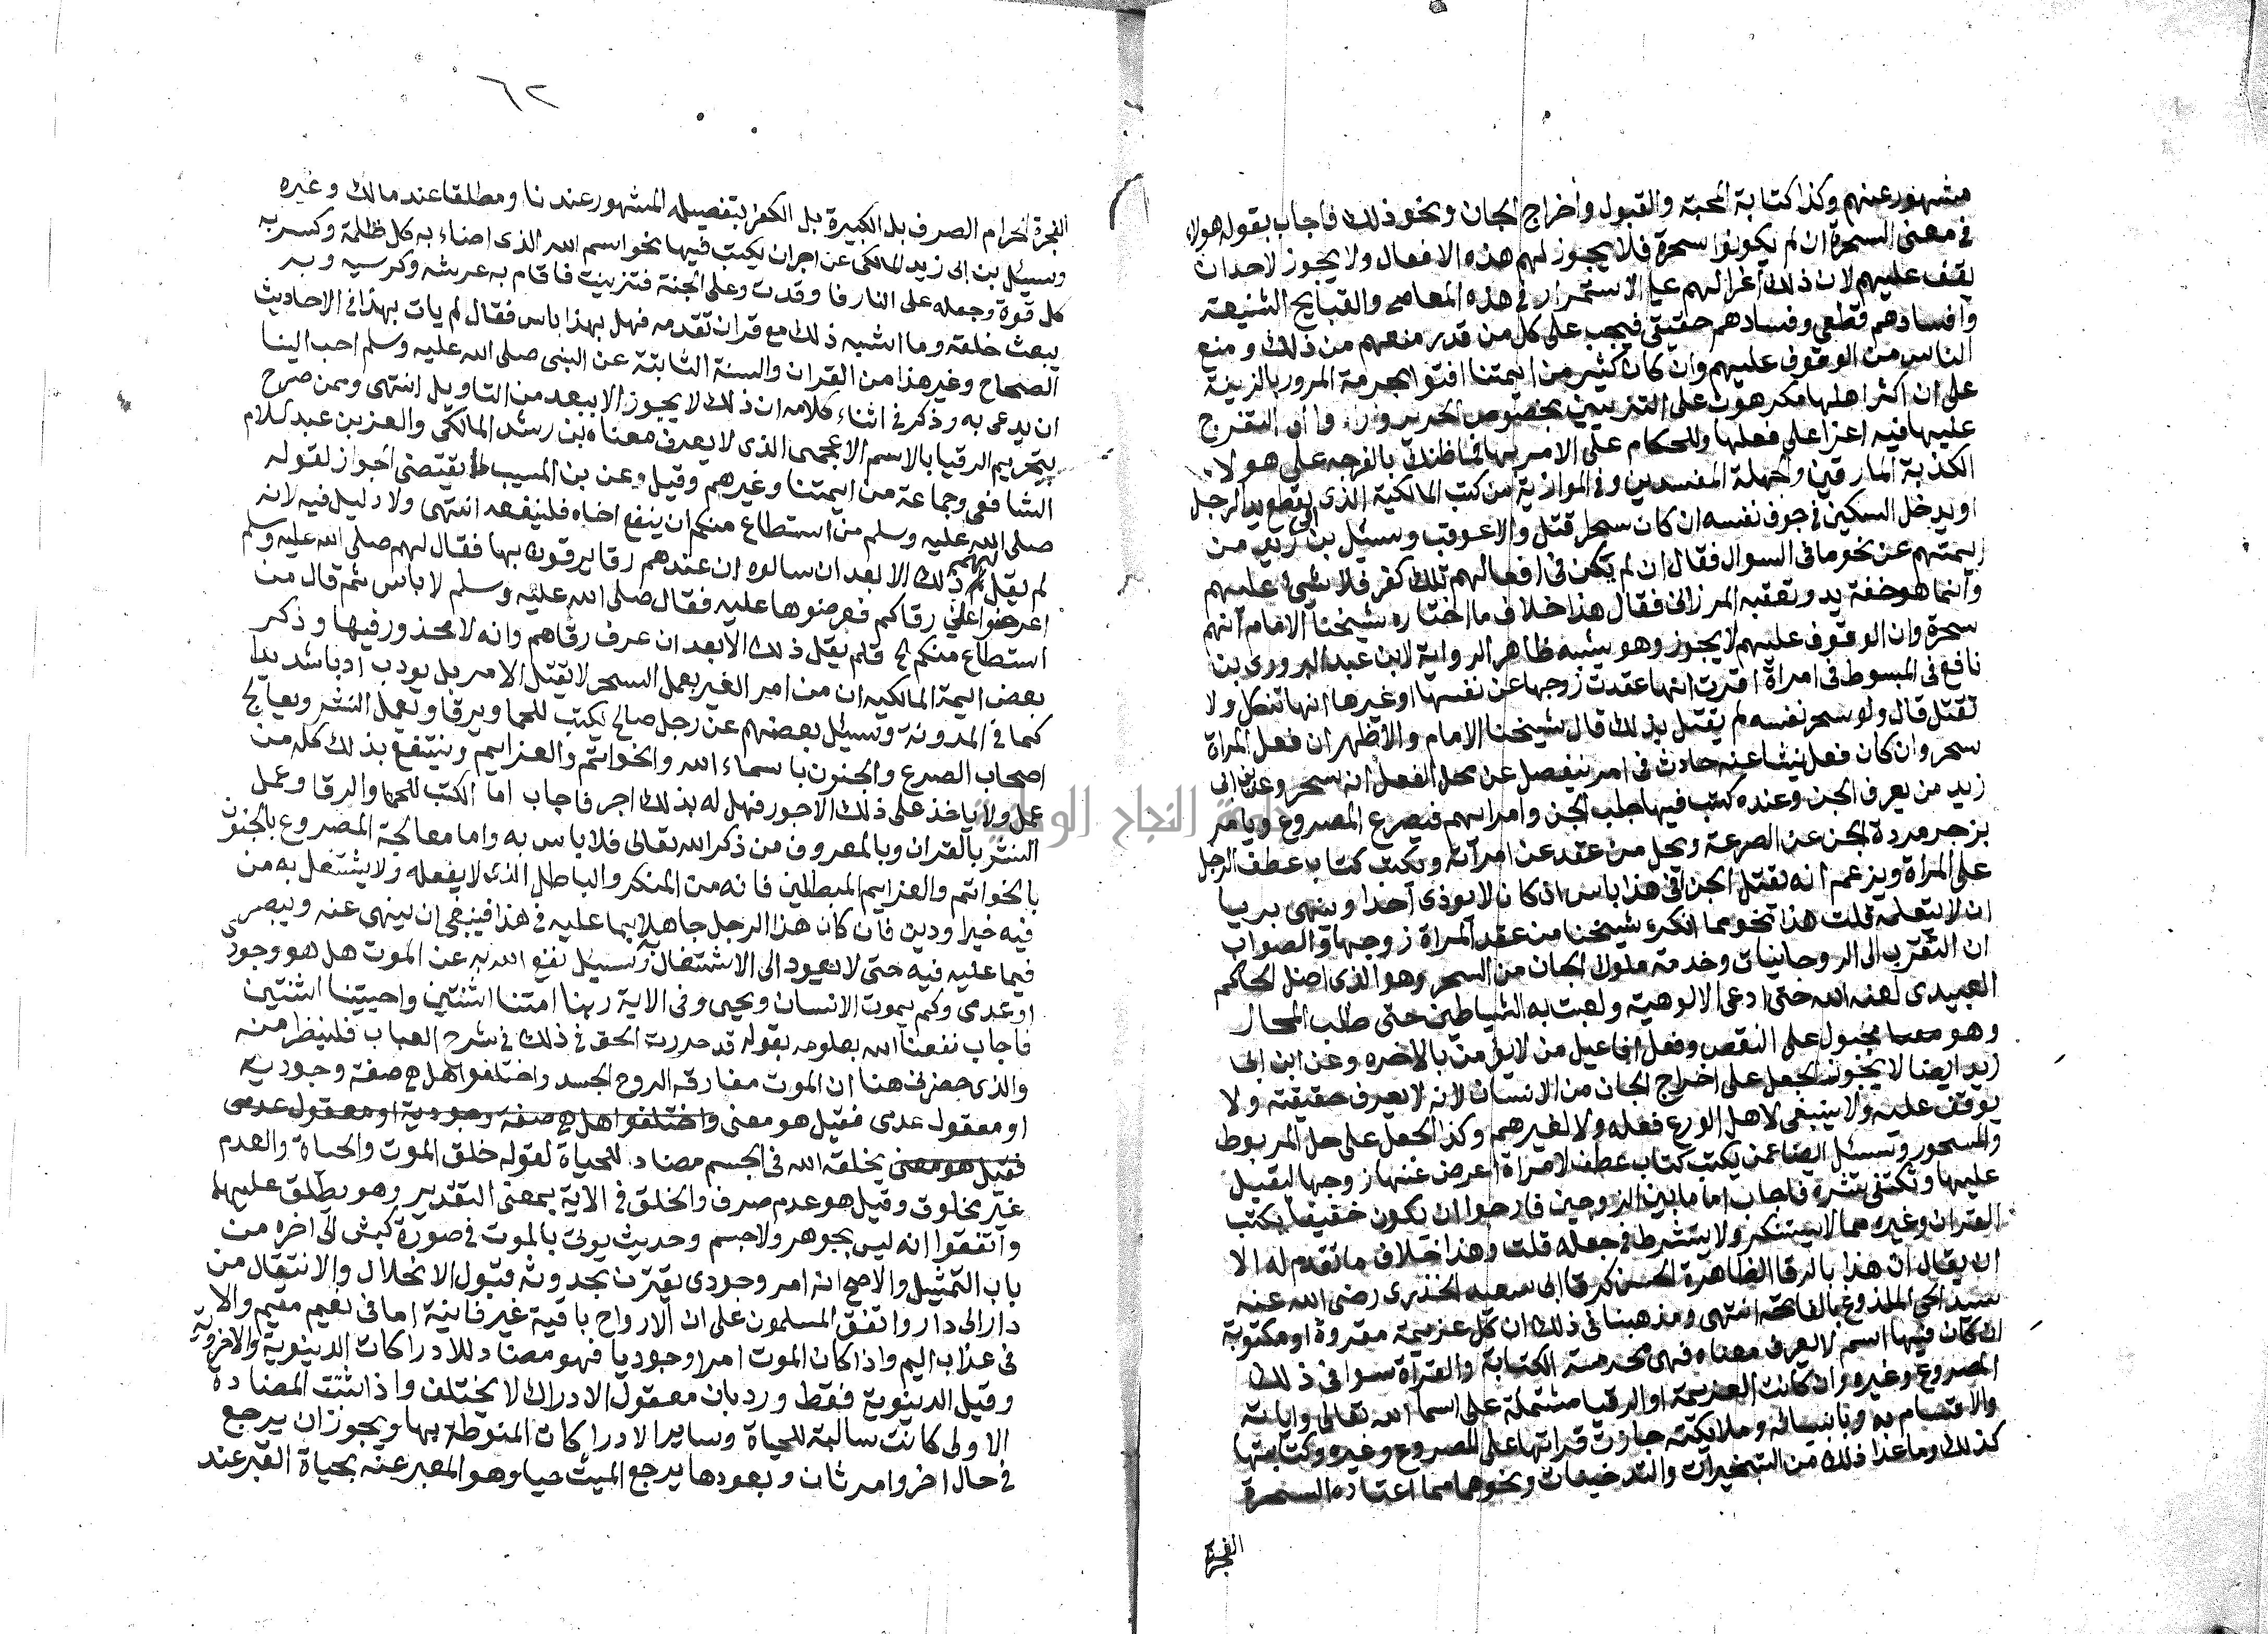 مشهور عنهم وكذا كتابة المحبة والقبول واخراج الجان ونحو ذلك فاجاب بقوله هولاء
في معنى السحرة ان لم يكونوا سحرة فلا يجوز لهم هذه الافعال ولا يجوز لاحد ان
يقف عليهم لان ذلك اغرا لهم على الاستمرار في هذه المعاصي والقبايح الشنيعة
وافسادهم قطعي وفسادهم حقيقي فيجب على كل من قدر منعهم من ذلك ومنع
الناس من الوقوف عليهم وان كان كثير من ايمتنا افتوا بحرمة المرور بالزينة
على ان اكثر اهلها مكرهون على التزيين بخصوص الحرير وا ان التفرج
عليها فيه اغرا على فعلها وللحكام على الامر بها فما ظنك بالفرجه على هولاء
الكذبة المارقين والجهلة المفسدين وفي الموازية من كتب المالكية الذي يقطع يد الرجل
او يدخل السكين في جوف نفسه ان كان سحرا قتل والا عوقب وسئل بن ابي زيد من
ايمتهم عن نحو ما في السوال فقال ان لم يكن في افعالهم تلك كفر فلا شى عليهم
وانما هو خفة يد وتعقبه المرزالى فقال هذا خلاف ما اختاره شيخنا الامام انهم
سحرة وان الوقوف عليهم لا يجوز وهو يشبه ظاهر الرواية لابن عبد البر وروى بن
نافع في المبسوط في امراة اقرت انها عقدت زوجها عن نفسها او غيرها انها تنكل ولا
تقتل قال ولو سحر نفسه لم يقتل بذلك قال شيخنا الامام والاظهر ان فعل المراة
سحر وان كان فعل ينشا عنه حادث في امر ينفصل عن محل الفعل انه سحر وعن بن ابى
زيد من يعرف الجن وعنده كتب فيها جلب الجن وامراسهم فيصرع المصروع ويامر
بزجر مردة الجن عن الصرعة ويحل من عقد عن امرآته ويكتب كتاب عطف الرجل
على المراة ويزعم انه يقتل الجن افي هذا باس ان كان لا يوذى احدا وينهى بريبا
ان لا يتعلمه قلت هذا نحو مما انكره شيخنا من عقد المراة زوجها والصواب
ان التقرب الى الروحانيات وخدمة ملوك الجان من السحر وهو الذى اضل الحاكم
العبيدى لعنه الله حتى ادعى الالوهية ولعبت به الشياطين حتى طلب المحال
وهو مجبول على النقص وفعل افاعيل من لا يؤمن بالاخره وعن ابن ابى
زيد ايضا لا يجوز الجعل على اخراج الجان من الانسان لانه لا يعرف حقيقته ولا
يوقف عليه ولا ينبغى لاهل الورع فعله ولا لغيرهم وكذا الجعل على حل المربوط
والمسحور وسئل ايضا عمن يكتب كتاب عطف لامراة اعرض عنها زوجها ليقبل
عليها وتكتفى بنشرة فاجاب اما ما بين الزوجين فارجوا ان يكون خفيفا يكتب
القران وغيره مما لا يستنكر ولا يشترط في جعله قلت وهذا خلاف ما تقدم له الا
ان يقال ان هذا بالرقا الظاهرة الحسن كرقا ابى سعيد الخدرى رضى الله عنه
سيد الحي الملدوغ بالفاتحة انتهى ومذهبنا في ذلك ان كل عزيمة مقروة او مكتوبة
ان كان فيها اسم لا يعرف معناه فهى محرمة الكتابة والقراة سوا فى ذلك
المصروع وغيره وان كانت العزيمة او الرقيا مشتملة على اسما الله تعالى واياته
والاقتسام به وبانبيائه وملائكته جازت قراتها على المصروع وغيره وكتابتها
كذلك وما عدا ذلك من التبخيرات والتدخينات ونحوهما مما اعتاده السحرة
الفجرة
٦٢
الفجرة الحرام الصرف بل الكبيرة بل الكفر بتفصيله المشهور عندنا ومطلقا عند مالك وغيره
وسئل بن ابى زيد المالكى عن اجر ان يكتب فيها نحو اسم الله الذى اضاء به كل ظلمة وكسر به
كل قوة وجعله على النار فاوقدت وعلى الجنة فتزينت فاقام به عرشه وكرسيه وبه
يبعث خلقه وما اشبه ذلك مع قران تقدمه فهل بهذا باس فقال لم يات بهذا في الاحاديث
الصحاح وغير هذا من القران والسنة الثابتة عن النبى صلى الله عليه وسلم احب الينا
ان يدعى به وذكر في اثناء كلامه ان ذلك لا يجوز الا ببعد من التاويل انتهى وممن صرح
بتحريم الرقيا بالاسم الاعجمى الذى لا يعرف معناه بن رشد المالكى والعز بن عبد السلام
الشافعى وجماعة من ايمتنا وغيرهم وقيل وعن بن المسيب ما يقتضى الجواز لقوله
صلى الله عليه وسلم من استطاع منكم ان ينفع اخاه فلينفعه انتهى ولا دليل فيه لانه
لم يقل لهم ذلك الا بعد ان سالوه ان عندهم رقا يرقون بها فقال لهم صلى الله عليه وسلم
اعرضوا على رقاكم فعرضوها عليه فقال صلى الله عليه وسلم لا باس ثم قال من
استطاع منكم الخ فلم يقل ذلك الا بعد ان عرف رقاهم وانه لا محذور فيها وذكر
بعض ايمة المالكيه ان من امر الغير بعمل السحر لا يقتل الامر بل يودب ادبا شديدا
كما في المدونة وسئل بعضهم عن رجل صالح يكتب للحما ويرقا ويعمل النشر ويعالج
اصحاب الصرع والجنون باسماء الله والخواتم والعزايم وينتفع بذلك كله من
عمل ولا ياخذ على ذلك الاجور فهل له بذلك اجر فاجاب اما الكتب للحما والرقا وعمل
النشر بالقران وبالمعروف من ذكر الله تعالى فلا باس به واما معالجة المصروع بالجنون
بالخواتم والعزايم المبطلين فانه من المنكر والباطل الذى لا يفعله ولا يشتغل به من
فيه خير او دين فان كان هذا الرجل جاهلا بما عليه في هذا فينبغى ان ينهى عنه ويبصر
فيما عليه فيه حتى لا يعود الى الاشتغال به وسئل نفع الله به عن الموت هل هو وجودى
او عدمى وكم يموت الانسان ويحيى وفى الاية ربنا امتنا اثنتين واحييتنا اثنتين
فاجاب نفعنا الله بعلومه بقوله قد حررت الحق في ذلك في شرح العباب فلينظر منه
والذى حضرنى هنا ان الموت مفارقه الروح الجسد واختلفوا هل هو صفة وجودية
او معقول عدمى فقيل هو معنى واختلفوا هل هو صفة وجودية او معقول عدمى
فقيل هو معنى يخلقه الله في الجسم مضاد للحياة لقوله خلق الموت والحياة والعدم
غير مخلوق وقيل هو عدم صرف والخلق في الاية بمعنى التقدير وهو يطلق عليهما
واتفقوا انه ليس بجوهر ولا جسم وحديث يوتى بالموت في صورة كبش الى اخره من
باب التمثيل والاصح انه امر وجودى يقترن بحدوثه قبول الانحلال والانتقال من
دار الى دار واتفق المسلمون على ان الارواح باقية غير فانية اما فى نعيم مقيم والا
فى عذاب اليم واذا كان الموت امرا وجوديا فهو مضاد للادراكات الدينوية والاخروية
وقيل الدينوية فقط ورد بان معقول الادراك لا يختلف واذا ثبتت المضادة
الاولى كانت سالبة للحياة وساير الادراكات المنوطة بها ويجوز ان يرجع
في حال اخر وامر ثان وبعودها يرجع الميت حيا وهو المعبر عنه بحياة القبر عند
جامعة النجاح الوطنية